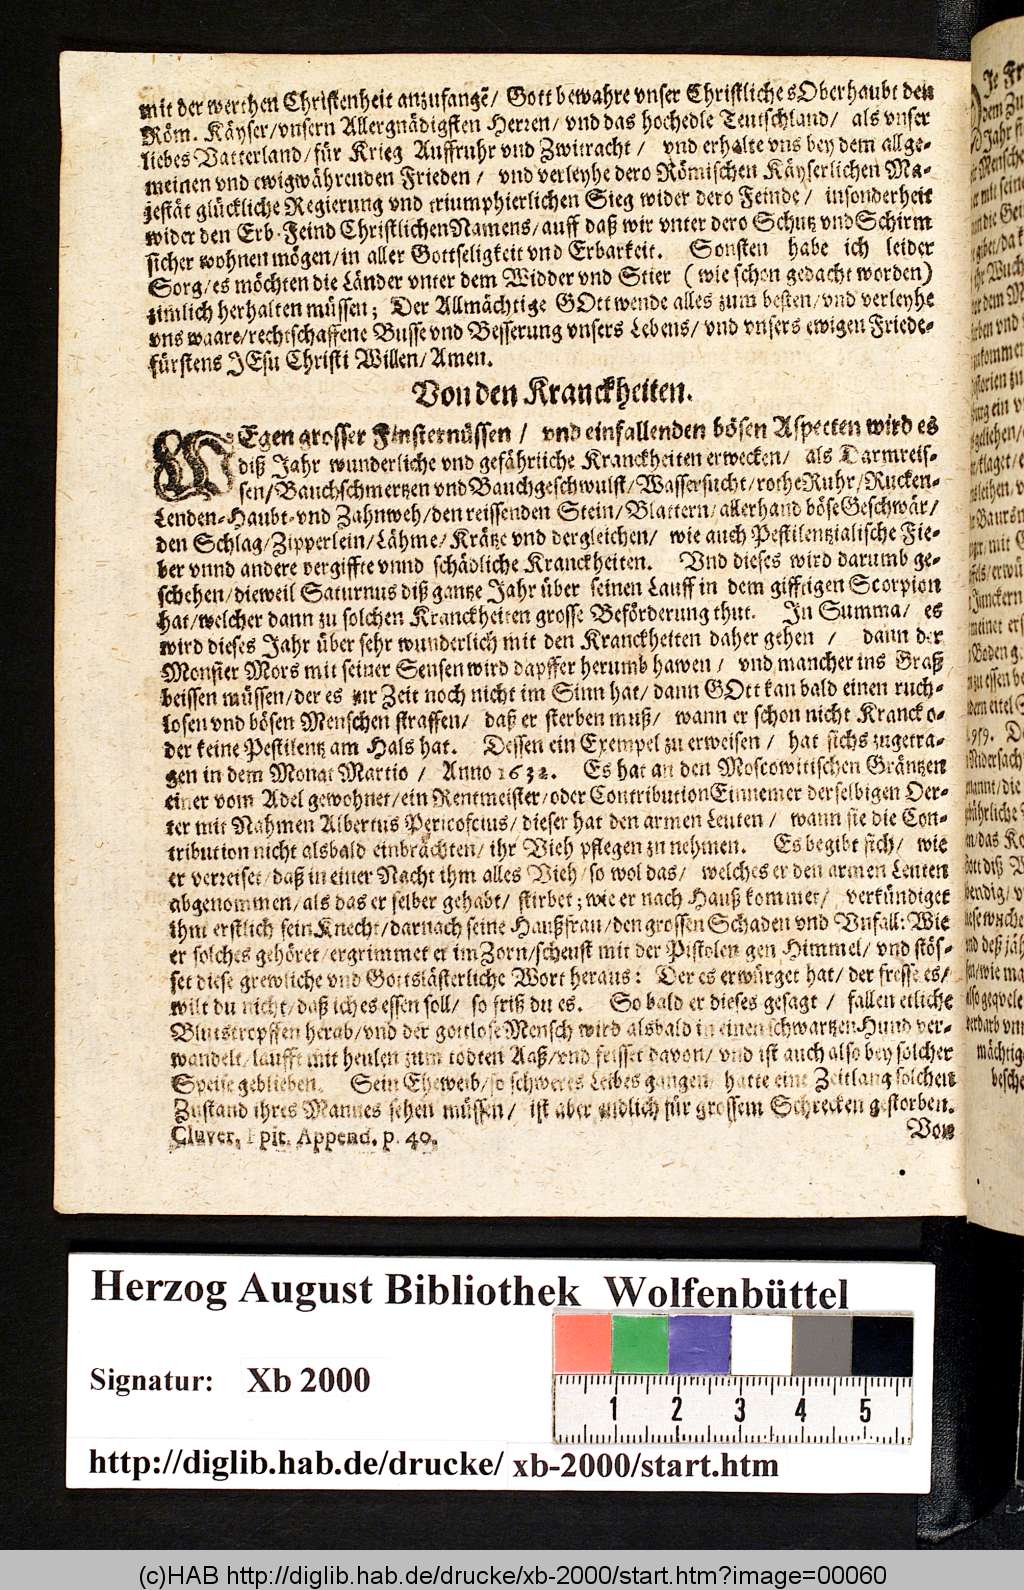 mit der werthen Christenheit anzufangẽ/ Gott bewahre vnser Christliches Oberhaubt den
Röm. Käyser/vnsern Allergnädigsten Herren/ vnd das hochedle Teutschland/ als vnser
liebes Vatterland/für Krieg Auffruhr vnd Zwitracht / vnd erhalte vns bey dem allge-
meinen vnd ewigwährenden Frieden / vnd verleyhe dero Römischen Käyserlichen Ma-
jestät glückliche Regierung vnd triumphierlichen Sieg wider dero Feinde / insonderheit
wider den Erb-Feind Christlichen Namens/auff daß wir vnter dero Schutz vnd Schirm
sicher wohnen mögen/in aller Gottseligkeit vnd Erbarkeit. Sonsten habe ich leider
Sorg/es möchten die Länder vnter dem Widder vnd Stier (wie schon gedacht worden)
zimlich herhalten müssen; Der Allmächtige GOtt wende alles zum besten/vnd verleyhe
vns waare/rechtschaffene Busse vnd Besserung vnsers Lebens/ vnd vnsers ewigen Friede-
fürstens JEsu Christi Willen/Amen.
Von den Kranckheiten.
WEgen grosser Finsternüssen / vnd einfallenden bösen Aspecten wird es
diß Jahr wunderliche vnd gefährliche Kranckheiten erwecken/ als Darmreis-
sen/Bauchschmertzen vnd Bauchgeschwulst/Wassersucht/rothe Ruhr/Rucken-
Lenden-Haubt-vnd Zahnweh/den reissenden Stein/Blattern/allerhand böse Geschwär/
den Schlag/Zipperlein/Lähme/Krätze vnd dergleichen/ wie auch Pestilentzialische Fie-
ber vnnd andere vergiffte vnnd schädliche Kranckheiten. Vnd dieses wird darumb ge-
schehen/dieweil Saturnus diß gantze Jahr über seinen Lauff in dem gifftigen Scorpion
hat/welcher dann zu solchen Kranckheiten grosse Beförderung thut. In Summa/ es
wird dieses Jahr über sehr wunderlich mit den Kranckheiten daher gehen / dann der
Monsier Mors mit seiner Sensen wird dapffer herumb hawen / vnd mancher ins Graß
beissen müssen/der es zur Zeit noch nicht im Sinn hat/dann GOtt kan bald einen ruch-
losen vnd bösen Menschen straffen/ daß er sterben muß/ wann er schon nicht Kranck o-
der keine Pestilentz am Hals hat. Dessen ein Exempel zu erweisen / hat sichs zugetra-
gen in dem Monat Martio / Anno 1632. Es hat an den Moscowitischen Gräntzen
einer vom Adel gewohnet/ein Rentmeister/oder Contribution Einnemer derselbigen Oer-
ter mit Nahmen Albertus Pericofcius/dieser hat den armen Leuten / wann sie die Con-
tribution nicht alsbald einbrächten/ihr Vieh pflegen zu nehmen. Es begibt sich/ wie
er verreiset/daß in einer Nacht ihm alles Vieh/so wol das/ welches er den armen Leuten
abgenommen/als das er selber gehabt/ stirbet; wie er nach Hauß kommet/ verkündiget
ihm erstlich sein Knecht/darnach seine Haußfrau/den grossen Schaden vnd Vnfall: Wie
er solches gehöret/ergrimmet er im Zorn/scheust mit der Pistolen gen Himmel/ vnd stös-
set diese grewliche vnd Gottslästerliche Wort heraus: Der es erwürget hat/der fresse es/
wilt du nicht/daß ich es essen soll/ so friß du es. So bald er dieses gesagt / fallen etliche
Blutstropffen herab/vnd der gottlose Mensch wird alsbald in einen schwartzen Hund ver-
wandelt/laufft mit heulen zum todten Aaß/vnd frisset davon/ vnd ist auch also bey solcher
Speise geblieben. Sein Eheweib/so schweres Leibes gangen/ hatte eine Zeitlang solchen
Zustand ihres Mannes sehen müssen/ ist aber endlich für grossem Schrecken gestorben.
Cluver. Epit. Append. p. 40.
Von
Herzog August Bibliothek Wolfenbüttel
Signatur: Xb 2000
1 2 3 4 5
http://diglib.hab.de/drucke/ xb-2000/start.htm
(c)HAB http://diglib.hab.de/drucke/xb-2000/start.htm?image=00060